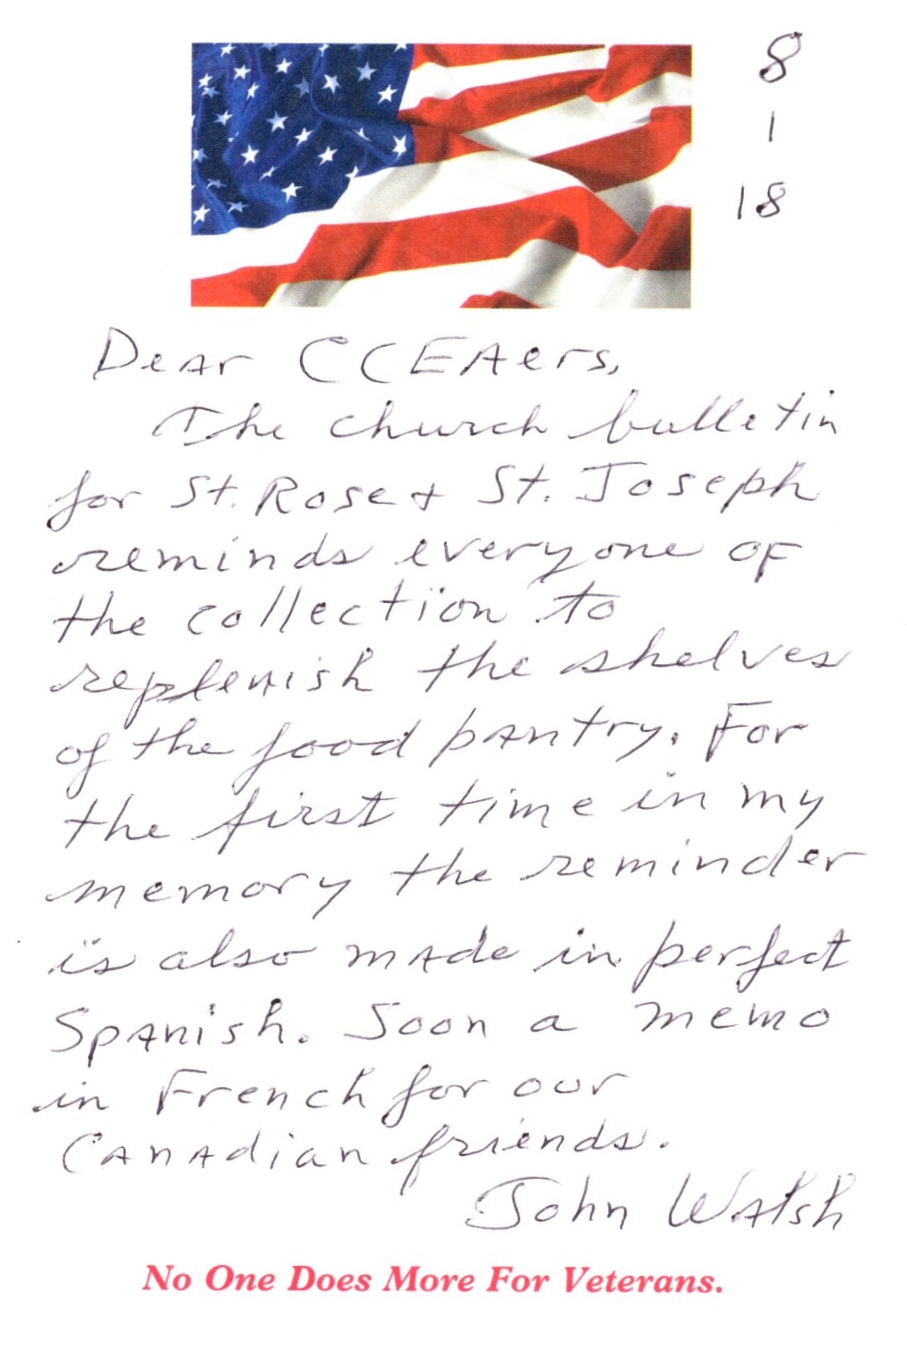 8
1
18
Dear CCEAers,
The church bulletin
for St. Rose & St. Joseph
reminds everyone of
the collection to
replenish the shelves
of the food pantry. For
the first time in my
memory the reminder
is also made in perfect
Spanish. Soon a memo
in French for our
Canadian friends.
John Walsh
No One Does More For Veterans.